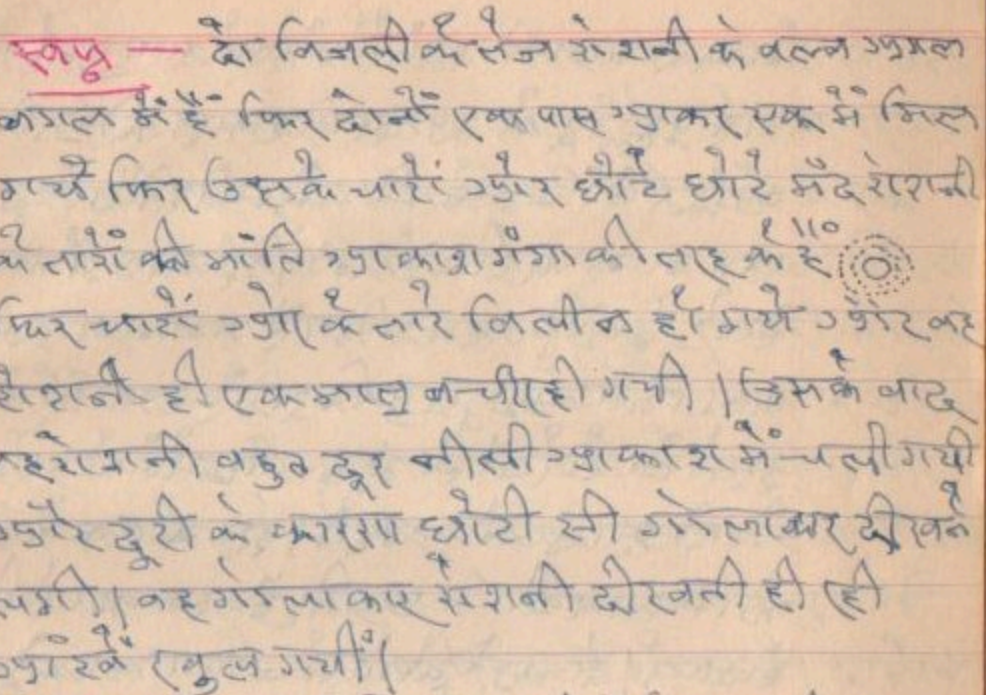 स्वप्न — दो बिजली के तेज रोशनी के वल्व अगल
बगल में हैं फिर दोनों एक पास आकर एक में मिल
गये फिर उसके चारों ओर छोटे छोटे मंद रोशनी
के तारों की भांति आकाश गंगा की तरह के हैं
फिर चारों ओर के तारे विलीन हो गये और वह
रोशनी ही एक मात्र बची रही गयी । उसके बाद
वह रोशनी बहुत दूर नीली आकाश में चली गयी
और दूरी के कारण छोटी सी गोलाकार दीखने
लगी । वह गोलाकार रोशनी दीखती ही रही
आंखें खुल गयीं ।